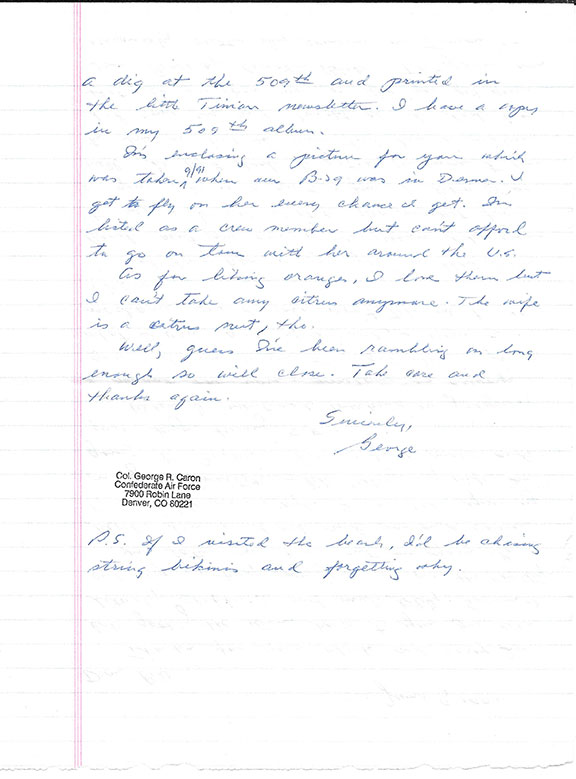 a dig at the 509th and printed in
the little Tinian newsletter. I have a copy
in my 509th album.
I'm enclosing a picture for you which
was taken 9/91 when our B-29 was in Denver. I
get to fly on her every chance I get. I'm
listed as a crew member but can't afford
to go on tour with her around the U.S.
As for liking oranges, I love them but
I can't take any citrus anymore. The wife
is a citrus nut, tho.
Well, guess I've been rambling on long
enough so will close. Take care and
thanks again.
Sincerely,
George
Col. George R. Caron
Confederate Air Force
7900 Robin Lane
Denver, CO 80221
P.S. If I visited the beach, I'd be chasing
string bikinis and forgetting why.